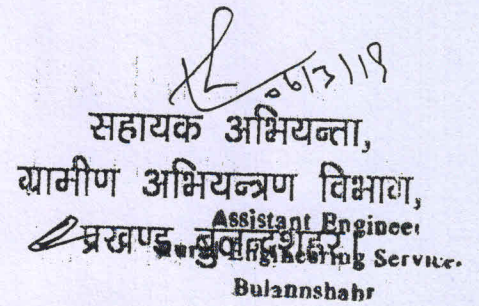 06/3/19
सहायक अभियन्ता,
ग्रामीण अभियन्त्रण विभाग,
प्रखण्ड बुलन्दशहर।
Assistant Engineer
Engineering Service.
Bulannshahr